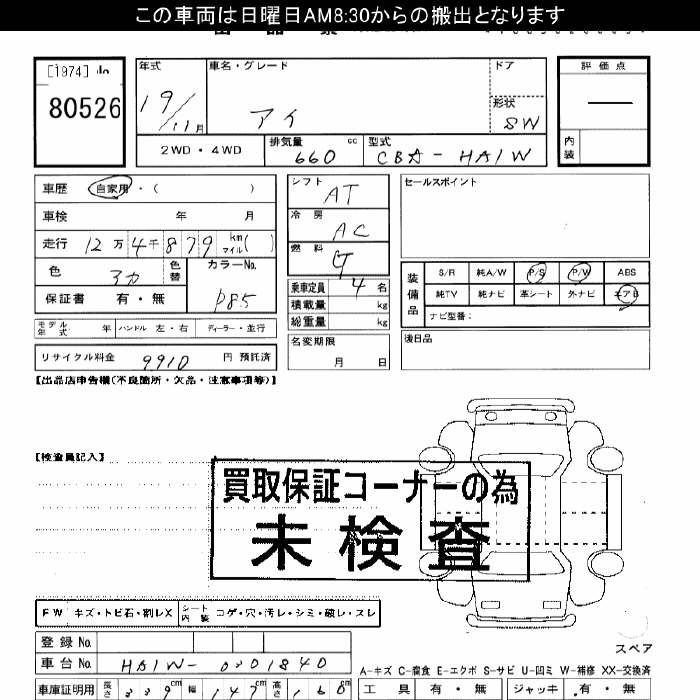 この車両は日曜日AM8:30からの搬出となります
[1974]
80526
年式
19/11月
車名・グレード
アイ
ドア
形状
SW
評価点
内装
2WD・4WD
排気量
660 cc
型式
CBA-HA1W
車歴 自家用・( )
車検 年 月
走行 12万4千879 km マイル( )
色 アカ 色替
カラーNo.
P85
保証書 有・無
モデル年式 年 ハンドル 左・右 ディーラー・並行
リサイクル料金 9910 円 預託済
シフト
AT
冷房
AC
燃料
乗車定員 4 名
積載量 kg
総重量 kg
名変期限
月 日
セールスポイント
装備品
S/R 純A/W P/S P/W ABS
純TV 純ナビ 革シート 外ナビ エアB
ナビ型番:
後日品
【出品店申告欄(不良箇所・欠品・注意事項等)】
【検査員記入】
買取保証コーナーの為
未検査
FW キズ・トビ石・割レX シート内装 コゲ・穴・汚レ・シミ・破レ・スレ
登録No.
車台No. HA1W-0301840
車庫証明用 長さ 339cm 幅 147cm 高さ 160cm
スペア
A-キズ C-腐食 E-エクボ S-サビ U-凹ミ W-補修 XX-交換済
工具 有・無 ジャッキ 有・無